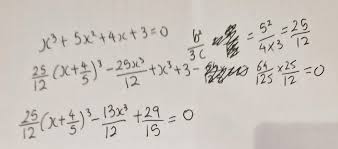 x³ + 5x² + 4x + 3 = 0
b²/3c = 5²/(4×3) = 25/12
25/12 (x + 4/5)³ - 25x³/12 + x³ + 3 - 64/125 × 25/12 = 0
25/12 (x + 4/5)³ - 13x³/12 + 29/15 = 0